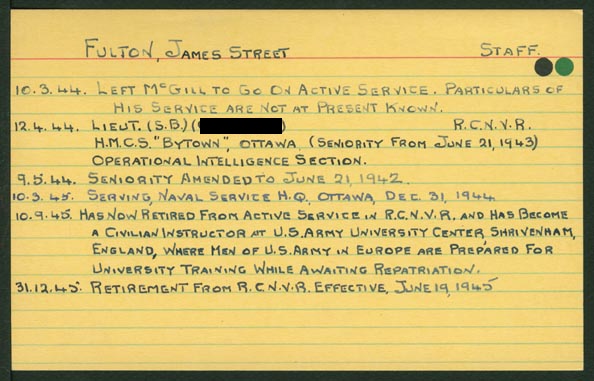 FULTON, JAMES STREET STAFF.
10.3.44. LEFT McGILL TO GO ON ACTIVE SERVICE. PARTICULARS OF
HIS SERVICE ARE NOT AT PRESENT KNOWN.
12.4.44. LIEUT. (S.B.) ( ) R.C.N.V.R.
H.M.C.S. "BYTOWN", OTTAWA (SENIORITY FROM JUNE 21, 1943)
OPERATIONAL INTELLIGENCE SECTION.
9.5.44. SENIORITY AMENDED TO JUNE 21, 1942.
10.3.45. SERVING, NAVAL SERVICE H.Q., OTTAWA, DEC. 31, 1944
10.9.45. HAS NOW RETIRED FROM ACTIVE SERVICE IN R.C.N.V.R. AND HAS BECOME
A CIVILIAN INSTRUCTOR AT U.S. ARMY UNIVERSITY CENTER, SHRIVENHAM,
ENGLAND, WHERE MEN OF U.S. ARMY IN EUROPE ARE PREPARED FOR
UNIVERSITY TRAINING WHILE AWAITING REPATRIATION.
31.12.45. RETIREMENT FROM R.C.N.V.R. EFFECTIVE, JUNE 19, 1945